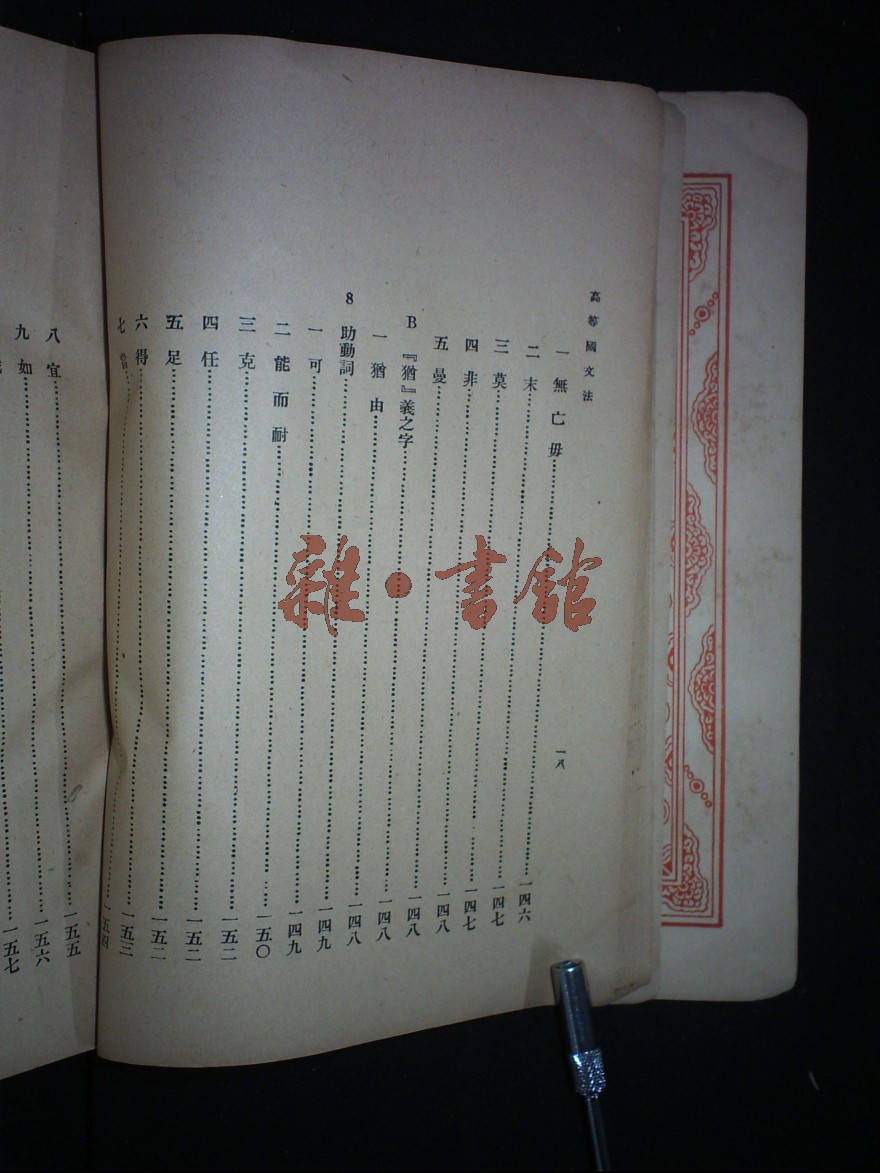 高等國文法 一八
一 無亡毋……一四六
二 末……一四七
三 莫……一四七
四 非……一四八
五 曼……一四八
B 『猶』義之字……一四八
一 猶由……一四八
8 助動詞……一四九
一 可……一四九
二 能而耐……一五〇
三 克……一五二
四 任……一五二
五 足……一五二
六 得……一五三
七……一五四
八 宜……一五五
九 如……一五六
……一五七
雜·書館